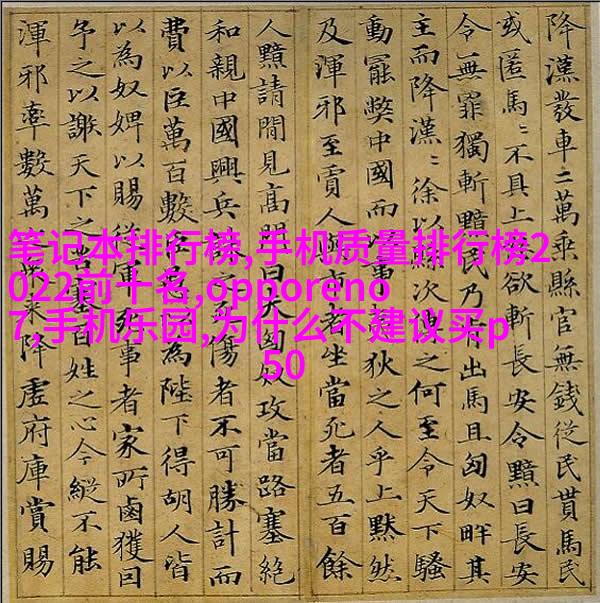 笔记本排行榜,手机质量排行榜2
022前十名,opporeno
7,手机乐园,为什么不建议买p
50
降漢發車二萬乘縣官無錢從民貰馬民
或匿馬〻不具上欲斬長安令黯曰長安
令無罪獨斬黯民乃肯出馬且匈奴畔其
主而降漢〻徐以縣次傳之何至令天下騷
動罷獘中國而以事夷狄之人乎上默然
及渾邪至賈人與市者坐當死者五百餘
人黯請間見高門曰夫匈奴攻當路塞絕
和親中國興兵誅之死傷者不可勝計而
費以巨萬百數臣愚以為陛下得胡人皆
以為奴婢以賜從軍死事者家所鹵獲因
予之以謝天下之苦塞百姓之心今縱不能
渾邪率數萬之衆来降虛府庫賞賜